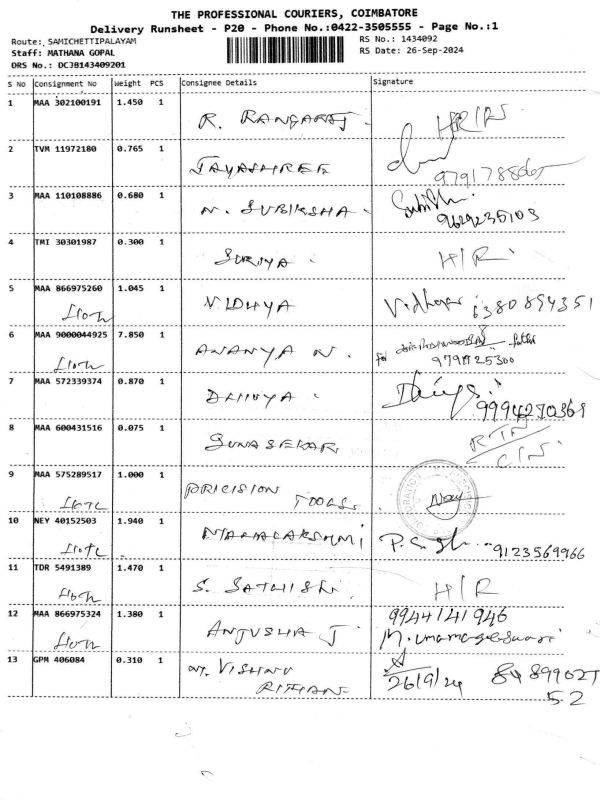 THE PROFESSIONAL COURIERS, COIMBATORE
Delivery Runsheet - P20 - Phone No.:0422-3505555 - Page No.:1
Route: SAMICHETTIPALAYAM
Staff: MATHANA GOPAL
DRS No.: DCJB143409201
RS No.: 1434092
RS Date: 26-Sep-2024
S No Consignment No Weight PCS Consignee Details Signature
1 MAA 302100191 1.450 1 R. RANGARAJ
2 TVM 11972180 0.765 1 JAYASHREE
3 MAA 110108886 0.680 1 N. SUBIKSHA 9629235103
4 TMI 30301987 0.300 1 SURIYA H/R
5 MAA 866975260 1.045 1 VIDHYA Vidhya 6380894351
6 MAA 9000044925 7.850 1 ANANYA N.
7 MAA 572339374 0.870 1 DHIVYA 9994270369
8 MAA 600431516 0.075 1 GUNASEKAR RTN
9 MAA 575289517 1.000 1 PRICISION TOOLS
10 NEY 40152503 1.940 1 MAHALAKSHMI 9123569966
11 TDR 5491389 1.470 1 S. SATHISH H/R
12 MAA 866975324 1.380 1 ANJUSHA J 9944141946
M. Umamageswari
13 GPM 406084 0.310 1 VISHNU 26/9/24 84 899027
52